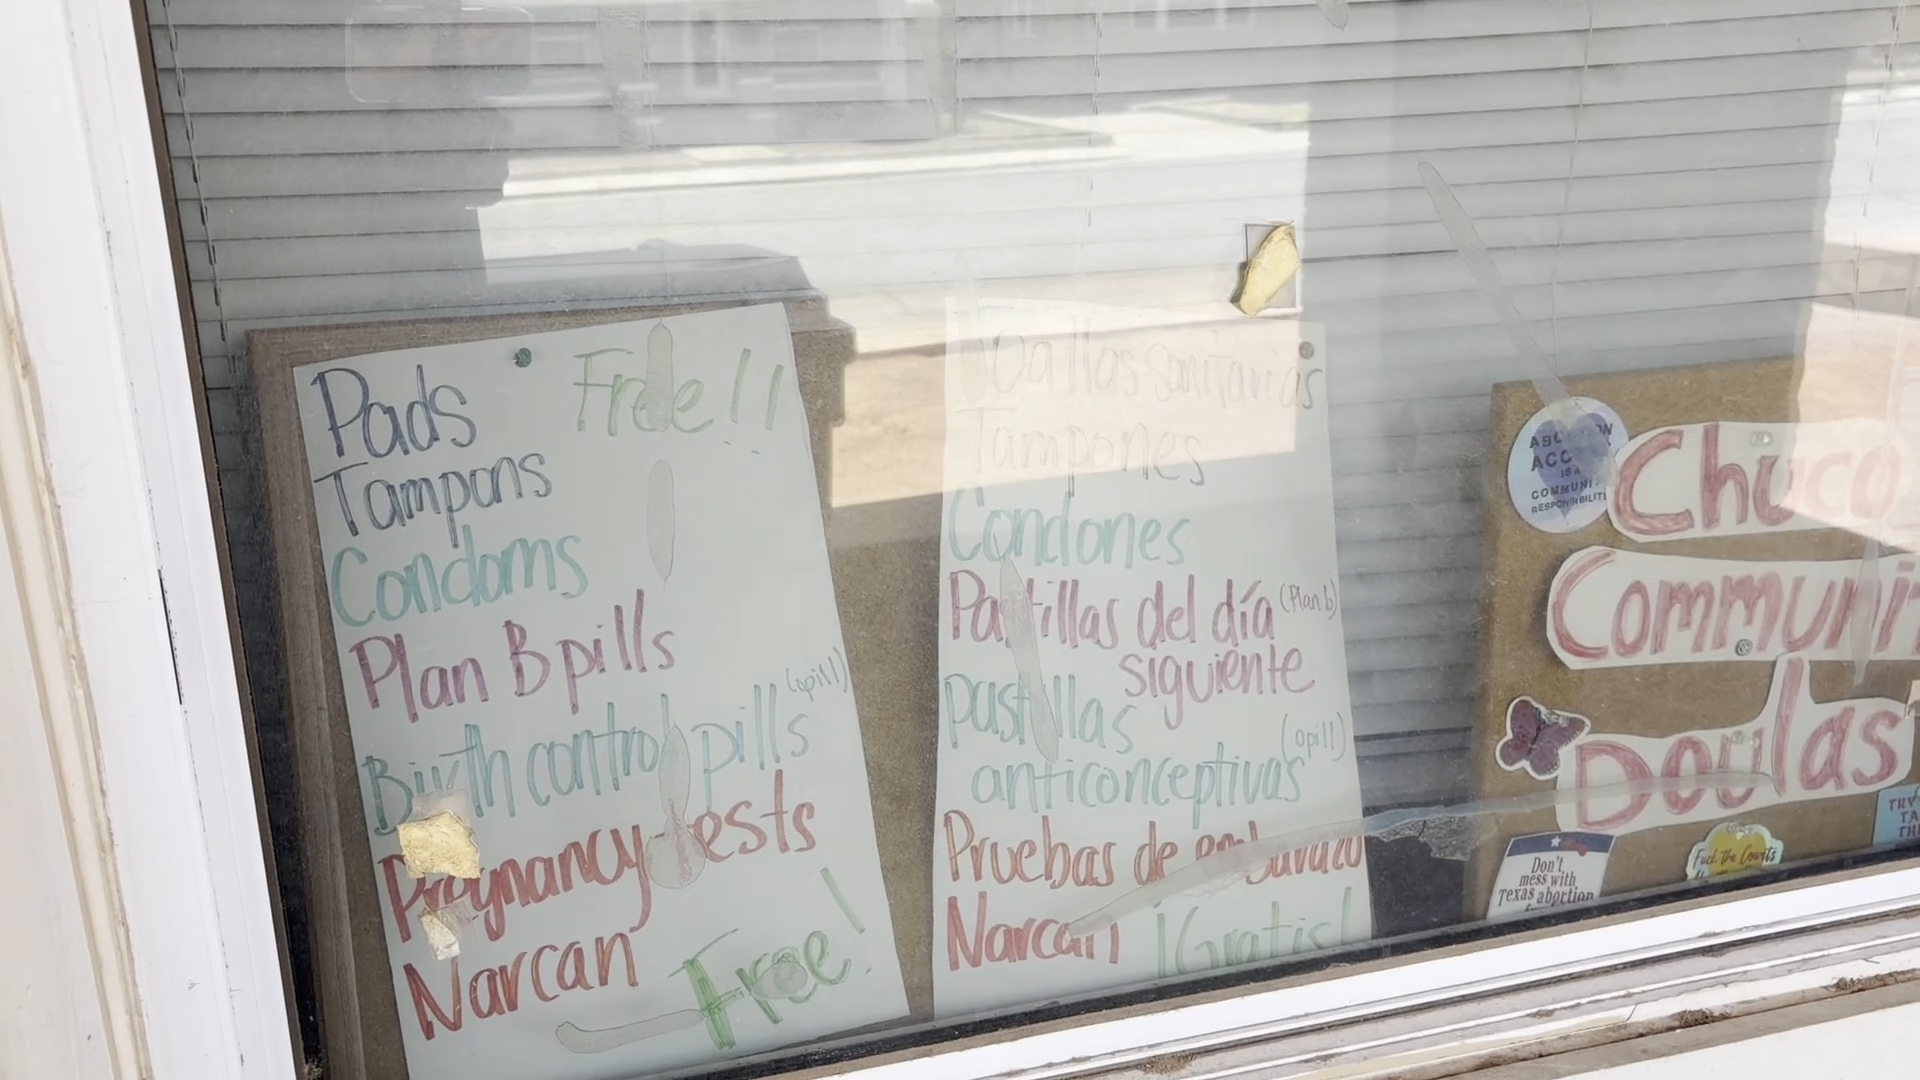 Pads Free!!
Tampons
Condoms
Plan B pills
Birth control pills (opill)
Pregnancy tests
Narcan
Free!
Toallas sanitarias
Tampones
Condones
Pastillas del día (Plan b)
siguiente
pastillas
anticonceptivas (opill)
Pruebas de embarazo
Narcan ¡Gratis!
ABORTION
ACC
IS A
COMMUNI
RESPONSIBILIT
Chuco
Communi
Doulas
Don't
mess with
Texas abortion
Fuck the Courts
TRY
TA
THI